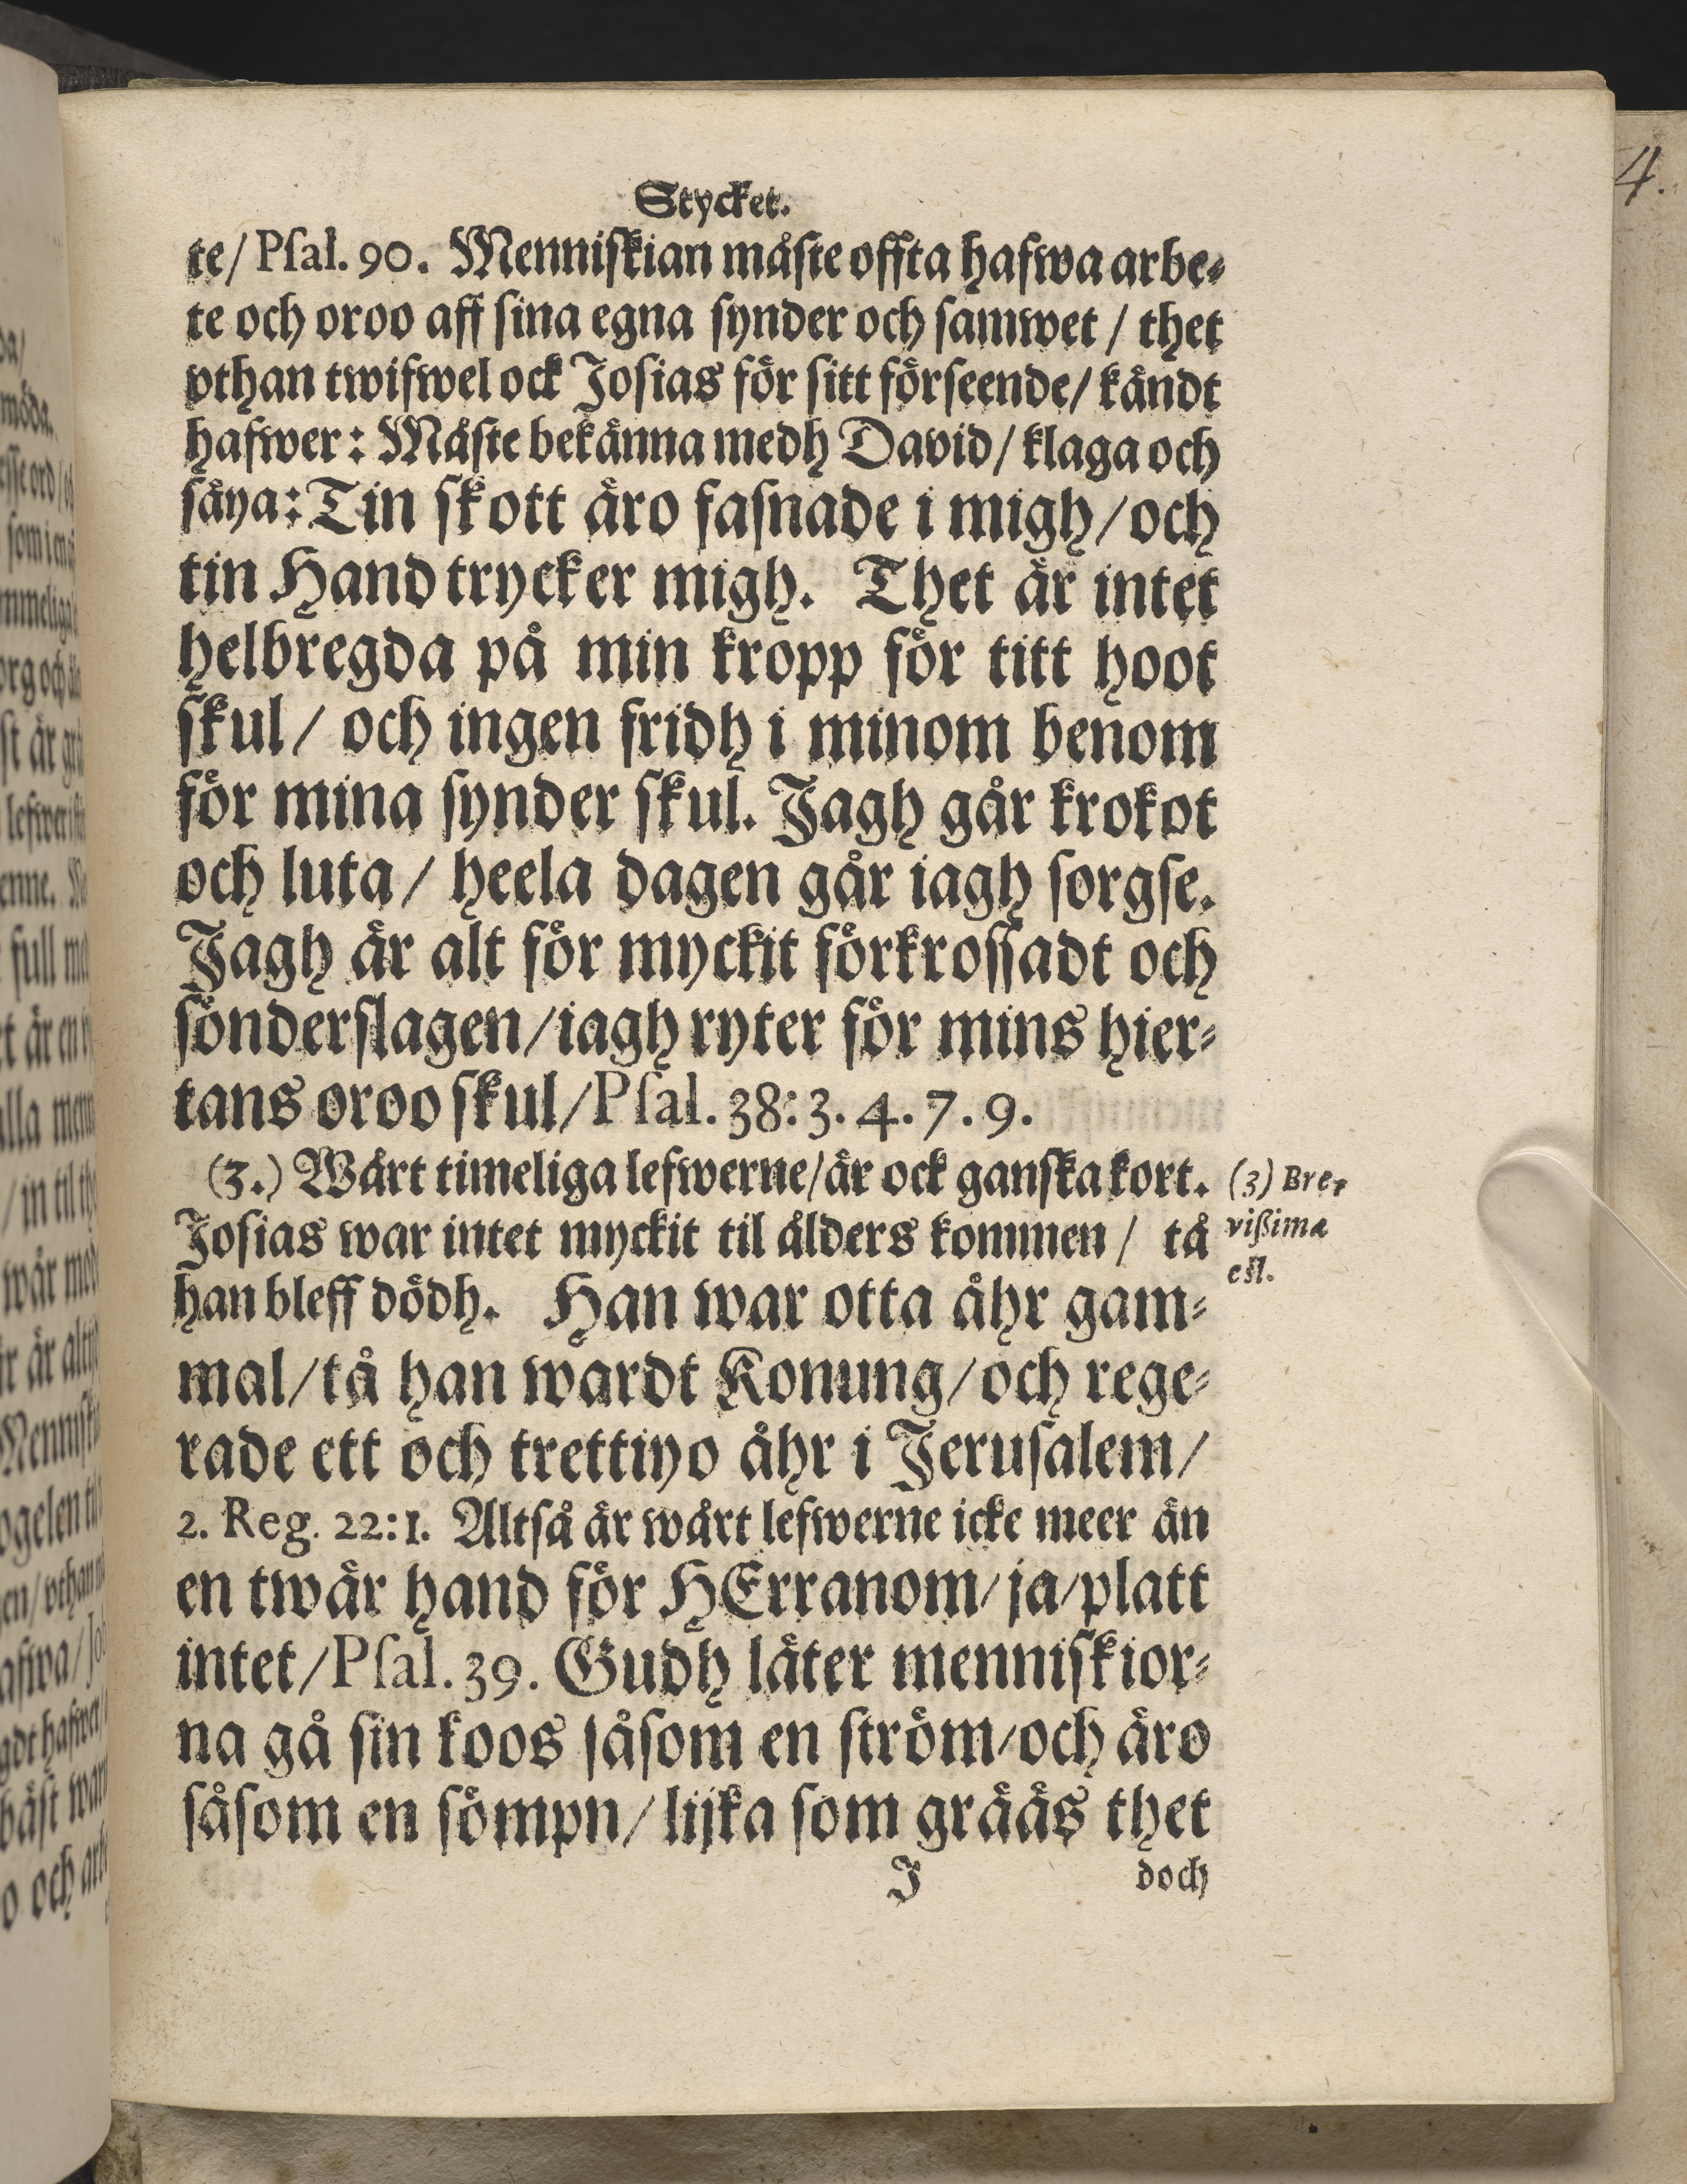 Stycket.
te/ Pſal. 90. Menniſkian måſte offta hafwa arbe-
te och oroo aff ſina egna ſynder och ſamwet / thet
vthan twifwel ock Joſias för ſitt förſeende/ kändt
hafwer: Måſte bekänna medh David/ klaga och
ſäya: Tin ſkott äro faſnade i migh/och
tin Hand trycker migh. Thet är intet
helbregda på min kropp för titt hoot
ſkul/ och ingen fridh i minom benom
för mina ſynder ſkul. Jagh går krokot
och luta/ heela dagen går iagh ſorgſe.
Jagh är alt för myckit förkroſſadt och
ſönderſlagen/iagh ryter för mins hier-
tans oroo ſkul/Pſal. 38:3. 4. 7. 9.
(3.) Wårt timeliga lefwerne/är ock ganſka kort.
Joſias war intet myckit til ålders kommen / tå
han bleff dödh. Han war otta åhr gam-
mal/tå han wardt Konung/och rege-
rade ett och trettiyo åhr i Jeruſalem/
2. Reg. 22:1. Altſå är wårt lefwerne icke meer än
en twär hand för HErranom/ja/platt
intet/Pſal. 39. Gudh låter menniſkior-
na gå ſin koos ſåſom en ſtröm/och äro
ſåſom en ſömpn/ lijka ſom grääs thet
J doch
(3) Bre-
vißima
eſt.
4.